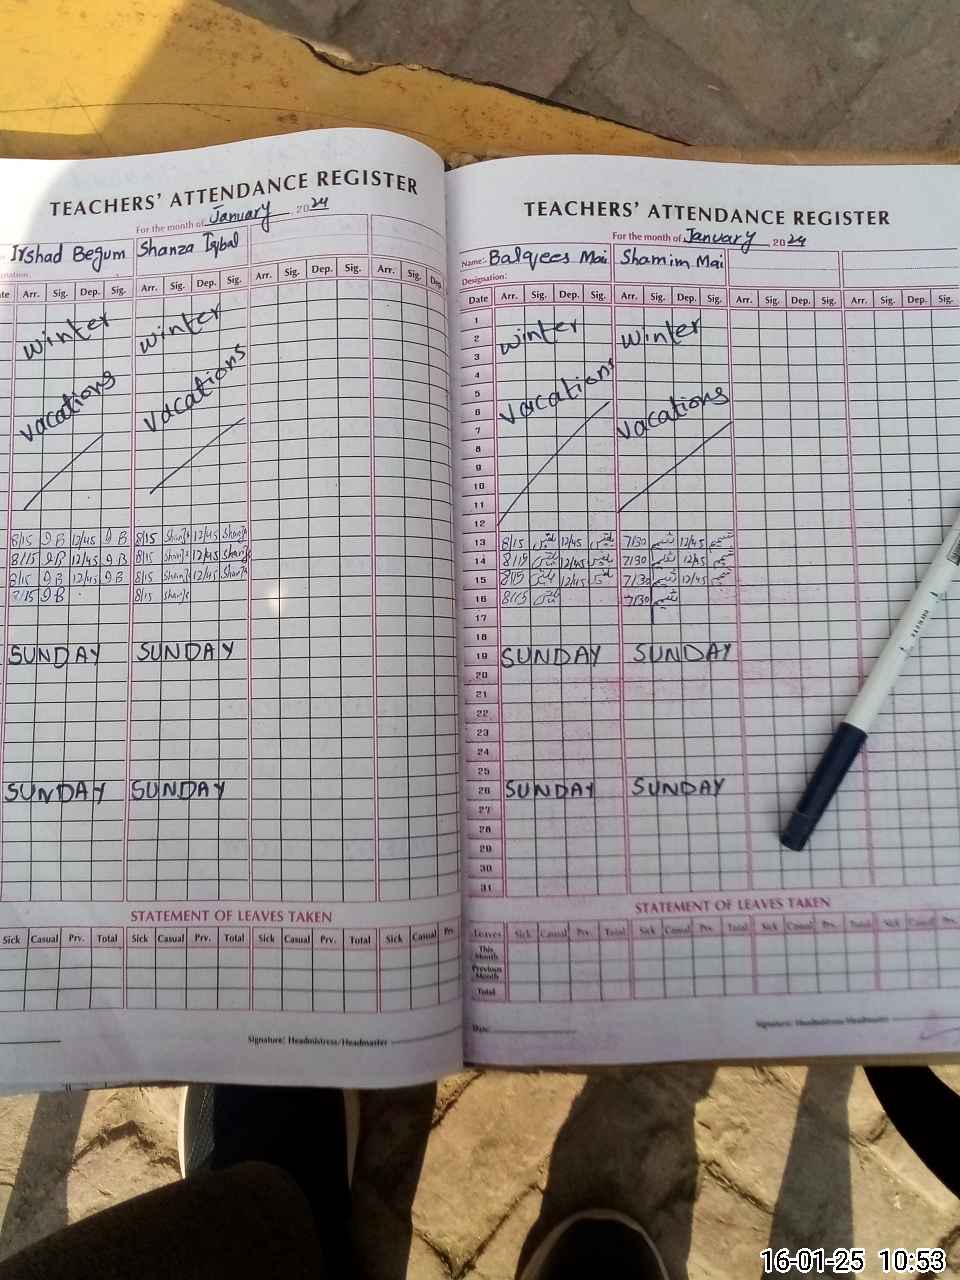 TEACHERS' ATTENDANCE REGISTER
For the month of January 2024
Irshad Begum Shanza Iqbal
Arr. Sig. Dep. Sig. Arr. Sig. Dep. Sig. Arr. Sig. Dep. Sig. Arr. Sig. Dep.
winter winter
vacations vacations
8/15 IB 12/45 IB 8/15 Shanza 12/45 Shanza
8/15 IB 12/45 IB 8/15 Shanza 12/45 Shanza
8/15 IB 12/45 IB 8/15 Shanza 12/45 Shanza
8/15 IB 8/15 Shanza
SUNDAY SUNDAY
SUNDAY SUNDAY
STATEMENT OF LEAVES TAKEN
Sick Casual Prv. Total Sick Casual Prv. Total Sick Casual Prv. Total Sick Casual Prv.
Signature: Headmistress/Headmaster
TEACHERS' ATTENDANCE REGISTER
For the month of January 2024
Name:- Balqees Mai Shamim Mai
Designation:
Date Arr. Sig. Dep. Sig. Arr. Sig. Dep. Sig. Arr. Sig. Dep. Sig. Arr. Sig. Dep. Sig.
1
2 winter winter
3
4
5 vacations
6 vacations
7
8
9
10
11
12
13 8/15 12/45 7/30 شمیم 12/45 شمیم
14 8/15 12/45 7/30 شمیم 12/45 شمیم
15 8/15 12/45 7/30 شمیم 12/45 شمیم
16 8/15 7/30 شمیم
17
18
19 SUNDAY SUNDAY
20
21
22
23
24
25
26 SUNDAY SUNDAY
27
28
29
30
31
STATEMENT OF LEAVES TAKEN
Leaves Sick Casual Prv. Total Sick Casual Prv. Total Sick Casual Prv. Total Sick Casual Prv.
This Month
Previous Month
Total
Date:
Signature: Headmistress/Headmaster
16-01-25 10:53